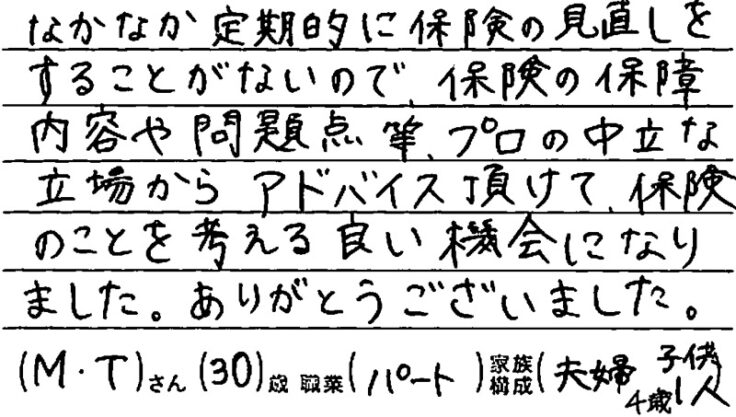 なかなか定期的に保険の見直しを
することがないので、保険の保障
内容や問題点等、プロの中立な
立場からアドバイス頂けて、保険
のことを考える良い機会になり
ました。ありがとうございました。
(M・T)さん(30)歳 職業(パート)家族構成(夫婦 子供4歳1人